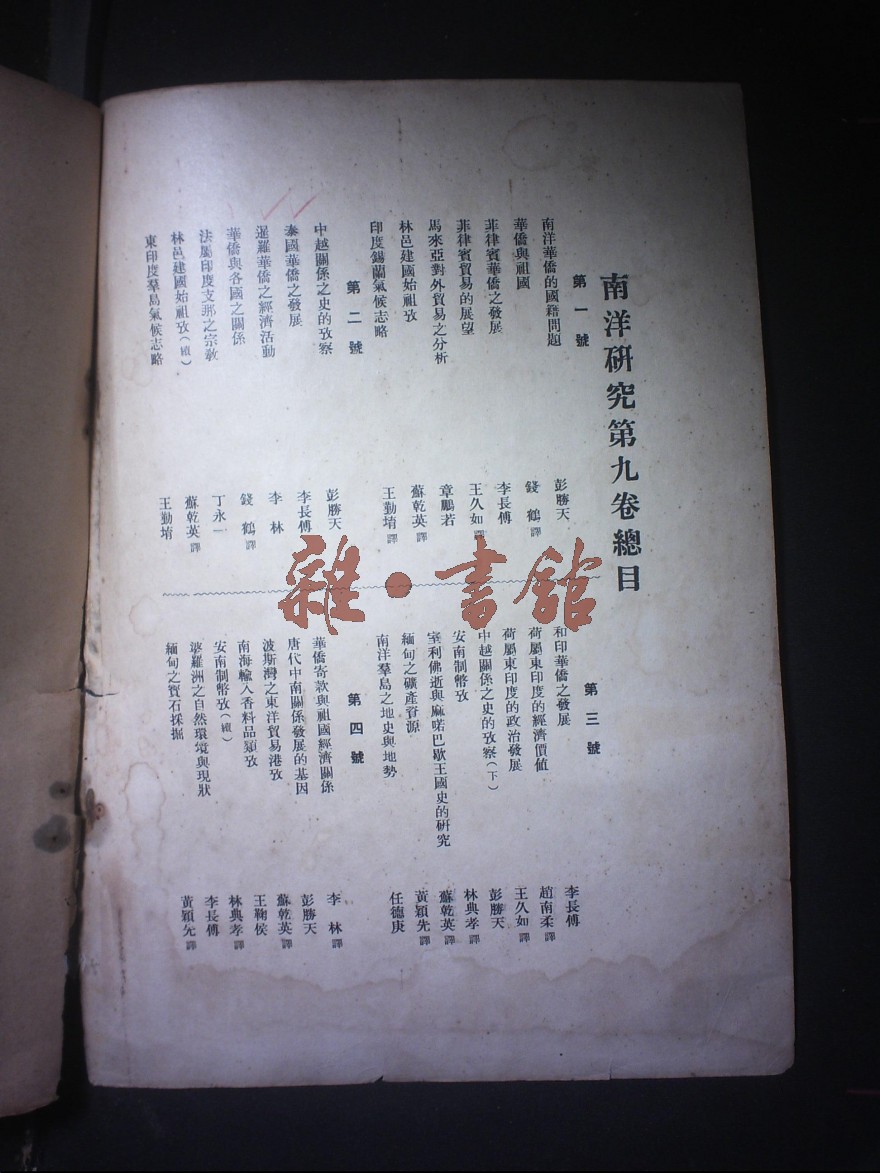 南洋研究第九卷總目
第一號
南洋華僑的國籍問題 彭勝天
華僑與祖國 錢鶴譯
菲律賓華僑之發展 李長傅
菲律賓貿易的展望 王久如譯
馬來亞對外貿易之分析 章鵬若
林邑建國始祖攷 蘇乾英譯
印度錫蘭氣候志略 王勤堉譯
第二號
中越關係之史的攷察 彭勝天
泰國華僑之發展 李長傅
暹羅華僑之經濟活動 李林
華僑與各國之關係 錢鶴譯
法屬印度支那之宗教 丁永一
林邑建國始祖攷(續) 蘇乾英譯
東印度羣島氣候志略 王勤堉
第三號
和印華僑之發展 李長傅
荷屬東印度的經濟價值 趙南柔譯
荷屬東印度的政治發展 王久如譯
中越關係之史的攷察(下) 彭勝天
安南制幣攷 林典孝譯
室利佛逝與麻喏巴歇王國史的研究 蘇乾英譯
緬甸之礦產資源 黃穎先譯
南洋羣島之地史與地勢 任德庚
第四號
華僑寄款與祖國經濟關係 李林譯
唐代中南關係發展的基因 彭勝天
波斯灣之東洋貿易港攷 蘇乾英譯
南海輸入香料品類攷 王鞠侯
安南制幣攷(續) 林典孝譯
婆羅洲之自然環境與現狀 李長傅
緬甸之寶石採掘 黃穎先譯
雜·書舘